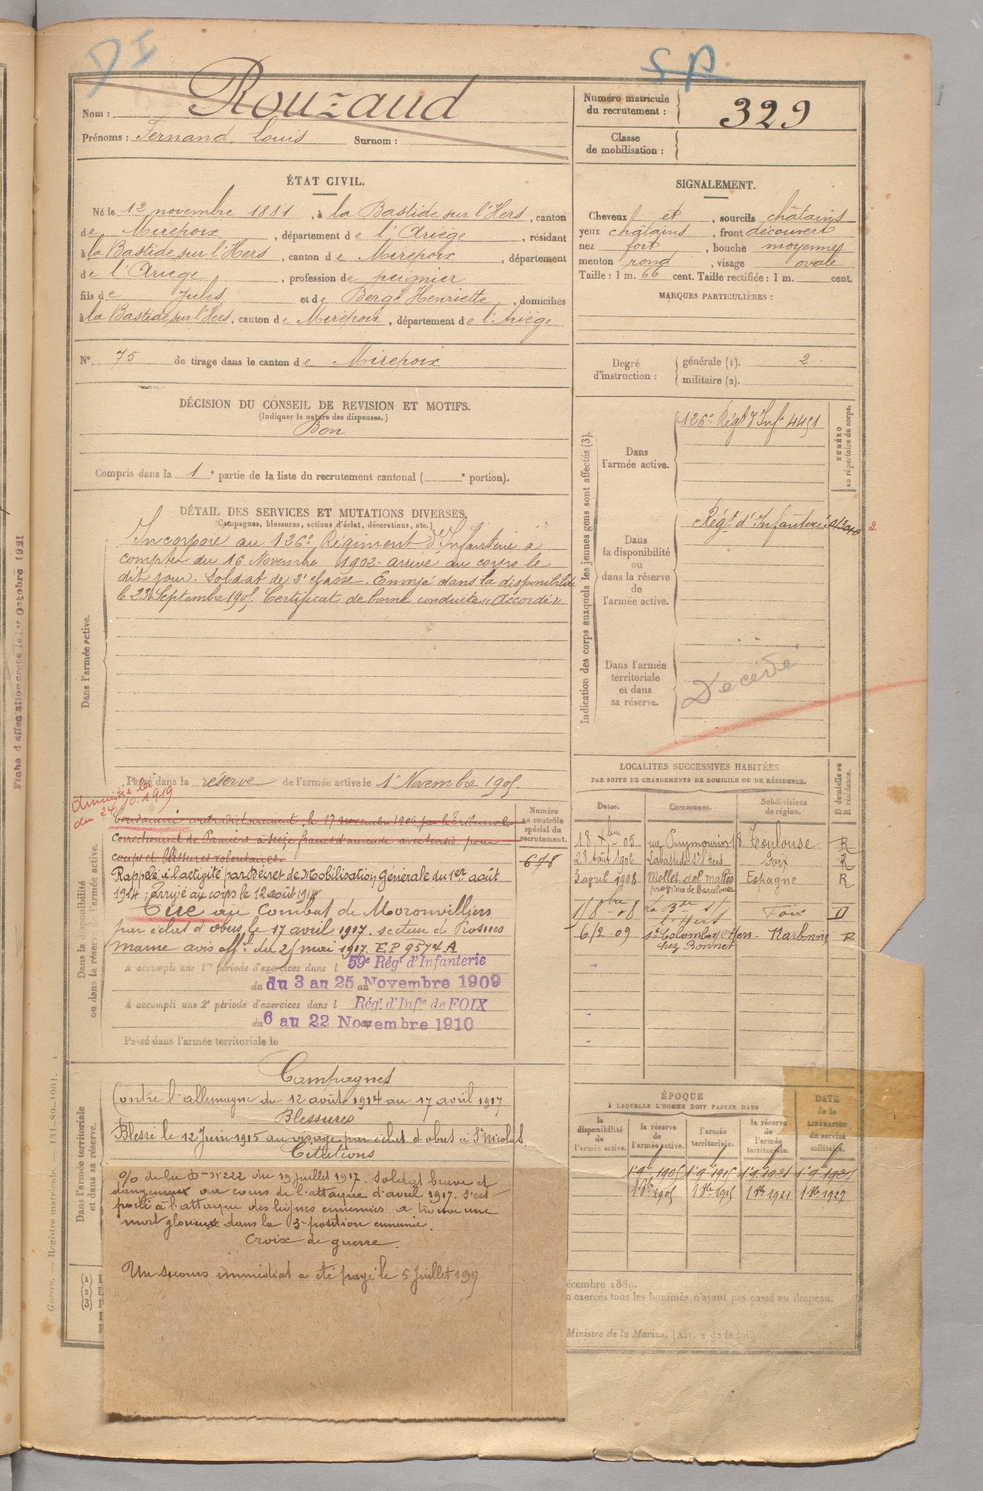 DI
SP
Nom : Rouzaud
Prénoms : Fernand, Louis Surnom :
Numéro matricule du recrutement : 329
Classe de mobilisation :
ÉTAT CIVIL.
Né le 12 novembre 1881, à la Bastide sur l'Hers, canton
de Mirepoix, département de l'Ariège, résidant
à la Bastide sur l'Hers, canton de Mirepoix, département
de l'Ariège, profession de peignier
fils de Jules et de Bergé Henriette, domiciliés
à la Bastide sur l'Hers, canton de Mirepoix, département de l'Ariège
N° 75 de tirage dans le canton de Mirepoix
SIGNALEMENT.
Cheveux et, sourcils châtains
yeux châtains, front découvert
nez fort, bouche moyenne
menton rond, visage ovale
Taille : 1 m. 66 cent. Taille rectifiée : 1 m. cent.
MARQUES PARTICULIÈRES :
Degré d'instruction : générale (1). 2
militaire (2).
DÉCISION DU CONSEIL DE REVISION ET MOTIFS.
(Indiquer la nature des dispenses.)
Bon
Compris dans la 1e partie de la liste du recrutement cantonal ( e portion).
DÉTAIL DES SERVICES ET MUTATIONS DIVERSES.
(Campagnes, blessures, actions d'éclat, décorations, etc.)
Dans l'armée active.
Incorporé au 126e Régiment d'Infanterie à
compter du 16 Novembre 1902 arrivé au corps le
dit jour. Soldat de 2e classe. Envoyé dans la disponibilité
le 23 Septembre 1905. Certificat de bonne conduite "Accordé"
Passé dans la réserve de l'armée active le 1er Novembre 1905
Indication des corps auxquels les jeunes gens sont affectés (3).
NUMÉRO au répertoire du corps.
Dans l'armée active.
126e Régt d'Infie 4451
Dans la disponibilité ou dans la réserve de l'armée active.
Régt d'Infanterie
2
Dans l'armée territoriale et dans sa réserve.
Décédé
Amnistié loi
du 24.10.1919
Dans la disponibilité ou dans la réserve de l'armée active.
Condamné contradictoirement, le 17 novembre 1906 par le tribunal
correctionnel de Pamiers à seize francs d'amende avec sursis pour
coups et blessures volontaires.
Rappelé à l'activité par Décret de Mobilisation Générale du 1er août
1914; arrivé au corps le 12 août 1914
Tué au Combat de Moronvilliers
par éclat d'obus le 17 avril 1917. secteur de Prosnes
marne avis offel du 25 mai 1917. E.P 9574 A
A accompli une 1re période d'exercices dans l 59e Rég. d'Infanterie
du 3 au 25 Novembre 1909
A accompli une 2e période d'exercices dans l Rég. d'Infie de FOIX
du 6 au 22 Novembre 1910
Passé dans l'armée territoriale le
Numéro au contrôle spécial du recrutement.
678
LOCALITÉS SUCCESSIVES HABITÉES
PAR SUITE DE CHANGEMENTS DE DOMICILE OU DE RÉSIDENCE.
Dates. Communes. Subdivisions de région. D domicile ou R résidence.
18 Xbre 05 rue Puymaurin 18 Toulouse R
28 août 1906 Labastide s/l'Hers Foix R
3 avril 1908 Mollet del Vallès provincia de Barcelona Espagne R
7/8bre 08 Foix D
6/2 09 Ste Colombe s/Hers chez Bonnet Narbonne R
Dans l'armée territoriale et dans sa réserve.
Campagnes
Contre l'allemagne du 12 août 1914 au 17 avril 1917
Blessures
Blessé le 12 Juin 1915 au visage par éclat d'obus à St Nicolas
Citations
O/ de la D n° 222 du 19 juillet 1917. Soldat brave et
dangereux au cours de l'attaque d'avril 1917. s'est
porté à l'attaque des lignes ennemies a trouvé une
mort glorieuse dans la 3e position ennemie.
Croix de guerre.
Un secours immédiat a été payé le 5 Juillet 1917
ÉPOQUE
À LAQUELLE L'HOMME DOIT PASSER DANS
DATE de la LIBÉRATION du service militaire.
la disponibilité de l'armée active.
la réserve de l'armée active.
l'armée territoriale.
la réserve de l'armée territoriale.
1er 9 1905 1er 9 1915 1er 9 1921 1er 9 1927
1er 9bre 1905 1er 9bre 1915 1er 9bre 1921 1er 9bre 1927
écembre 1889.
n exercés tous les hommes n'ayant pas passé au drapeau.
Ministre de la Marine.
Guerre. — Registre matricule. 131-89-1901.
Fiche d'affectation créée le 1er Octobre 1921